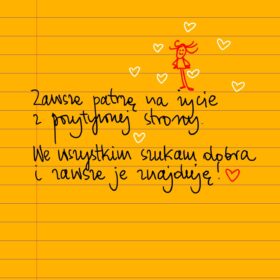 Zawsze patrzę na życie
z pozytywnej strony.
We wszystkim szukam dobra
i zawsze je znajduję!